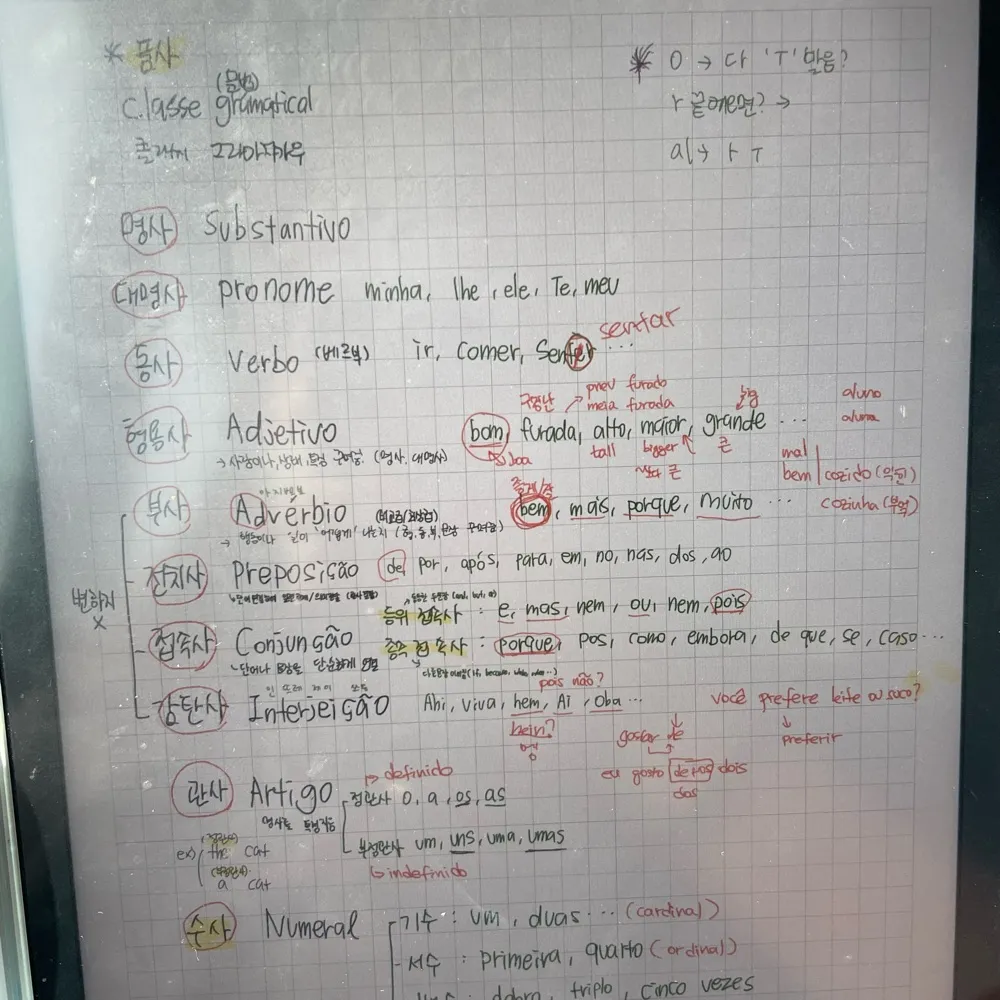 * 품사
(문법)
classe gramatical
클래시 그라마치카우
* O → 다 'ㅜ' 발음?
r 끝에오면? →
al → ㅏㅜ
명사 Substantivo
대명사 pronome minha, lhe, ele, Te, meu
sentar
동사 Verbo (베르부) ir, comer, Senter ...
구멍난 pneu furado
meia furada
형용사 Adjetivo bom, furada, alto, maior, grande ...
boa tall bigger 큰
더 큰
aluno
aluna
mal
bem cozido (익힌)
cozinha (부엌)
부사 Advérbio bem, mais, porque, muito ...
변하지 X
전치사 Preposição de, por, após, para, em, no, nas, dos, ao
등위 접속사 : e, mas, nem, ou, nem, pois
접속사 Conjunção 종속 접속사 : porque, pos, como, embora, de que, se, caso...
단어나 문장을 단순하게 연결
pois não?
감탄사 Interjeição Ahi, viva, hem, Ai, Oba ...
hein?
você prefere leite ou suco?
preferir
gostar de
eu gosto de+os dois
dos
definido
관사 Artigo 정관사 o, a, os, as
명사를 특정지음
부정관사 um, uns, uma, umas
indefinido
ex) (정관사) the cat
(부정관사) a cat
수사 Numeral 기수 : um, duas ... (cardinal)
서수 : primeira, quarto (ordinal)
triplo, cinco vezes